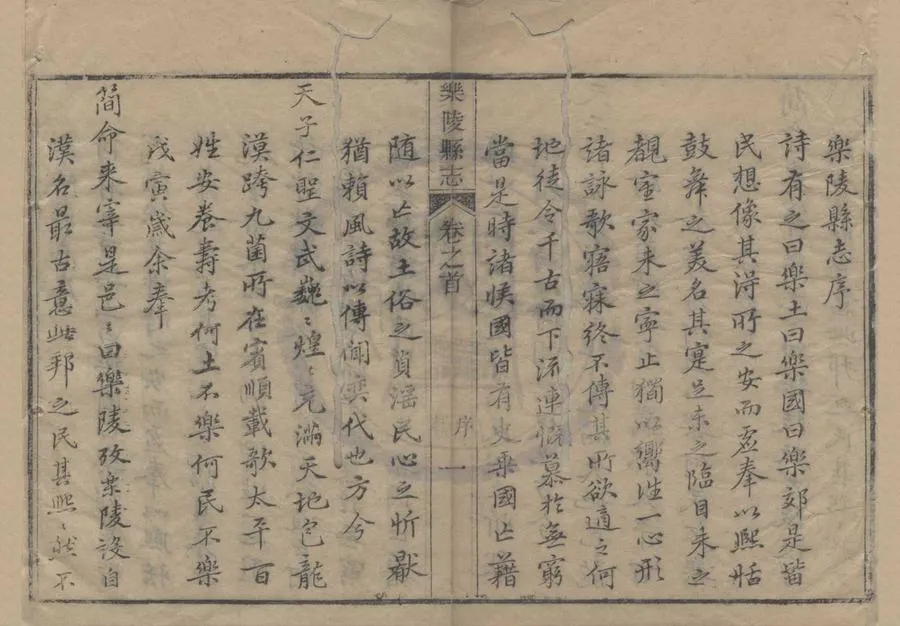 樂陵縣志序
詩有之曰樂土曰樂國曰樂郊是皆
民想像其淂所之安而虛奉以熙恬
鼓舞之美名其寔足未之臨目未之
覩室家未之寧止獨以嚮往一心形
諸詠歌寤寐終不傳其所欲適之何
地徒令千古而下流連慨慕扵無窮
當是時諸侯國皆有史乗國亡籍
樂陵縣志
卷之首
序
一
随以亡故土俗之貞滛民心之忻厭
猶賴風詩以傳聞奕代也方今
天子仁聖文武巍〻煌〻充滿天地包龍
漠跨九菌所在賓順載歌太平百
姓安養壽考何土不樂何民不樂
戊寅歲余奉
簡命来宰是邑〻曰樂陵攷樂陵設自
漢名最古意此邦之民其熙〻然不